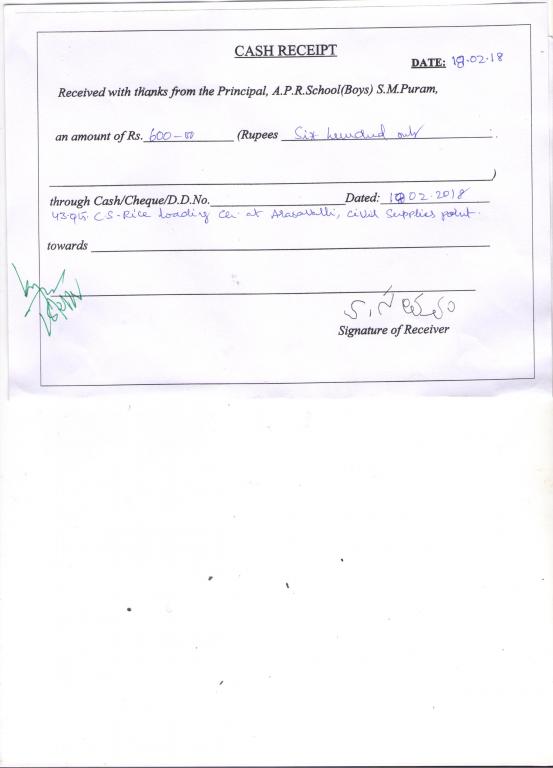 CASH RECEIPT
DATE: 18.02.18
Received with thanks from the Principal, A.P.R.School(Boys) S.M.Puram,
an amount of Rs. 600-00 (Rupees Six hundred only
)
through Cash/Cheque/D.D.No. Dated: 18 02.2018
43 qts. C.S-Rice loading at Arasavalli, civil Supplies point.
towards
Signature of Receiver